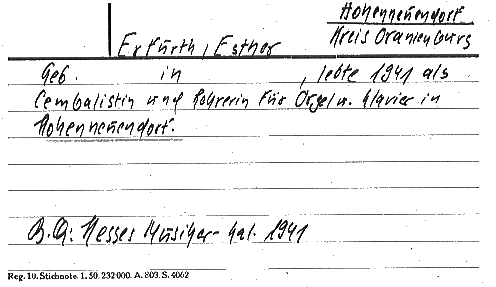 Hohenneuendorf
Kreis Oranienburg
Erfurth, Esther
Geb. in , lebte 1941 als
Cembalistin und Lehrerin für Orgel u. Klavier in
Hohenneuendorf.
B.Q: Hesses Musiker-Kal. 1941
Reg. 10. Stichnote. 1. 50. 232000. A. 803. S. 4062